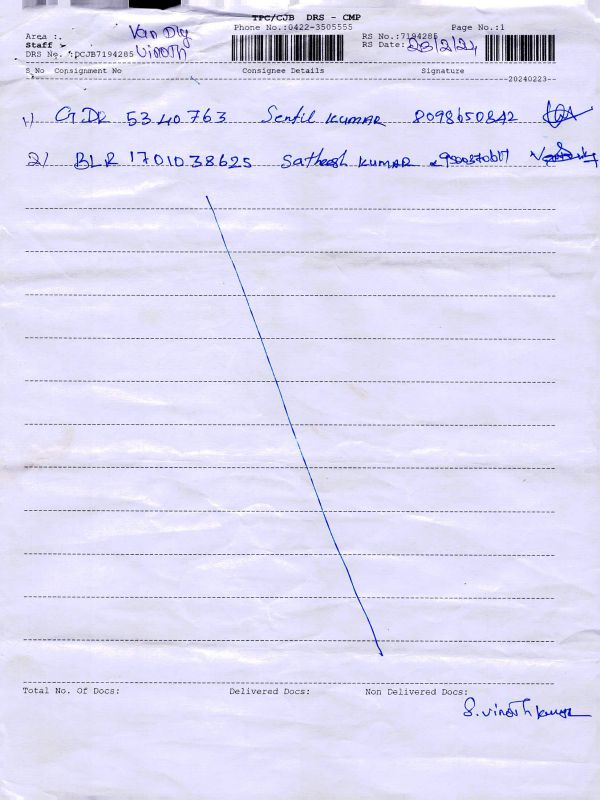 TPC/CJB DRS - CMP
Phone No.:0422-3505555 Page No.:1
Area :. Van Dly RS No.:7194285
Staff Vinoth RS Date: 23/2/24
DRS No. :PCJB7194285
S_No Consignment No Consignee Details Signature
20240223
1) GDR 5340763 Sentil KUMAR 8098650842
2) BLR 1701038625 Satheesh KUMAR
Total No. Of Docs: Delivered Docs: Non Delivered Docs:
S. Vinoth Kumar